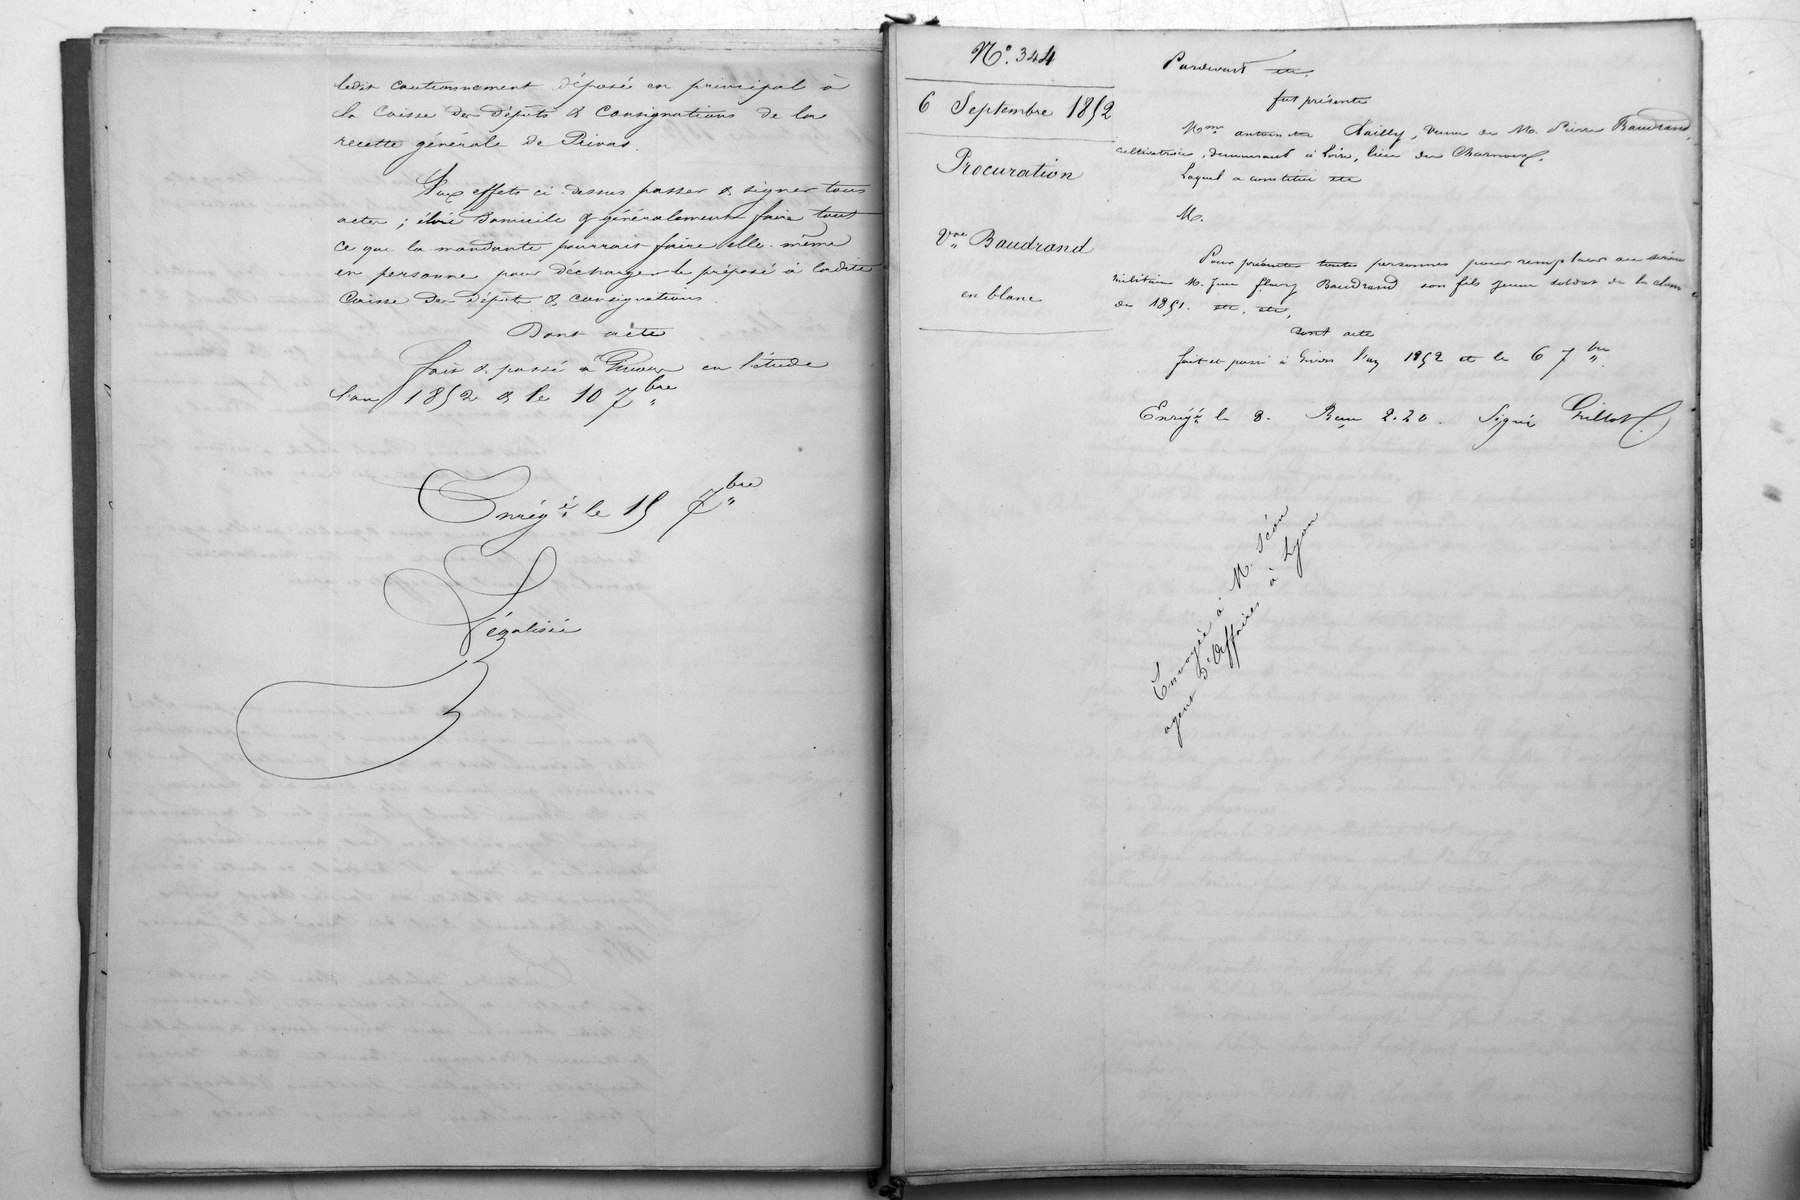 ledit cautionnement déposé en principal à
la Caisse des dépôts & Consignations de la
recette générale de Privas.
Aux effets ci-dessus passer & signer tous
actes ; élire domicile & généralement faire tout
ce que la mandante pourrait faire elle-même
en personne pour décharger le préposé à ladite
Caisse des dépôts & consignations.
Dont acte
fait & passé à Givors en l'étude
l'an 1852 & le 10 7bre
Enregé le 15 7bre
Légalisée
N° 344
6 Septembre 1852
Procuration
Vve Baudrand
en blanc
Pardevant etc.
fut présente
Mme antoinette Nailly, Veuve de M. Pierre Baudrand,
cultivatrice, demeurant à Loire, lieu de Charnavel.
Laquel a constitué etc
M.
Pour présenter toutes personnes pour remplacer au service
militaire M. Jean fleury Baudrand son fils jeune soldat de la classe
de 1851. etc. etc.
Dont acte
fait et passé à Givors l'an 1852 et le 6 7bre
Enregé le 8. Reçu 2.20. Signé Guillot
Envoyée à M. Séon
agent d'Affaires à Lyon